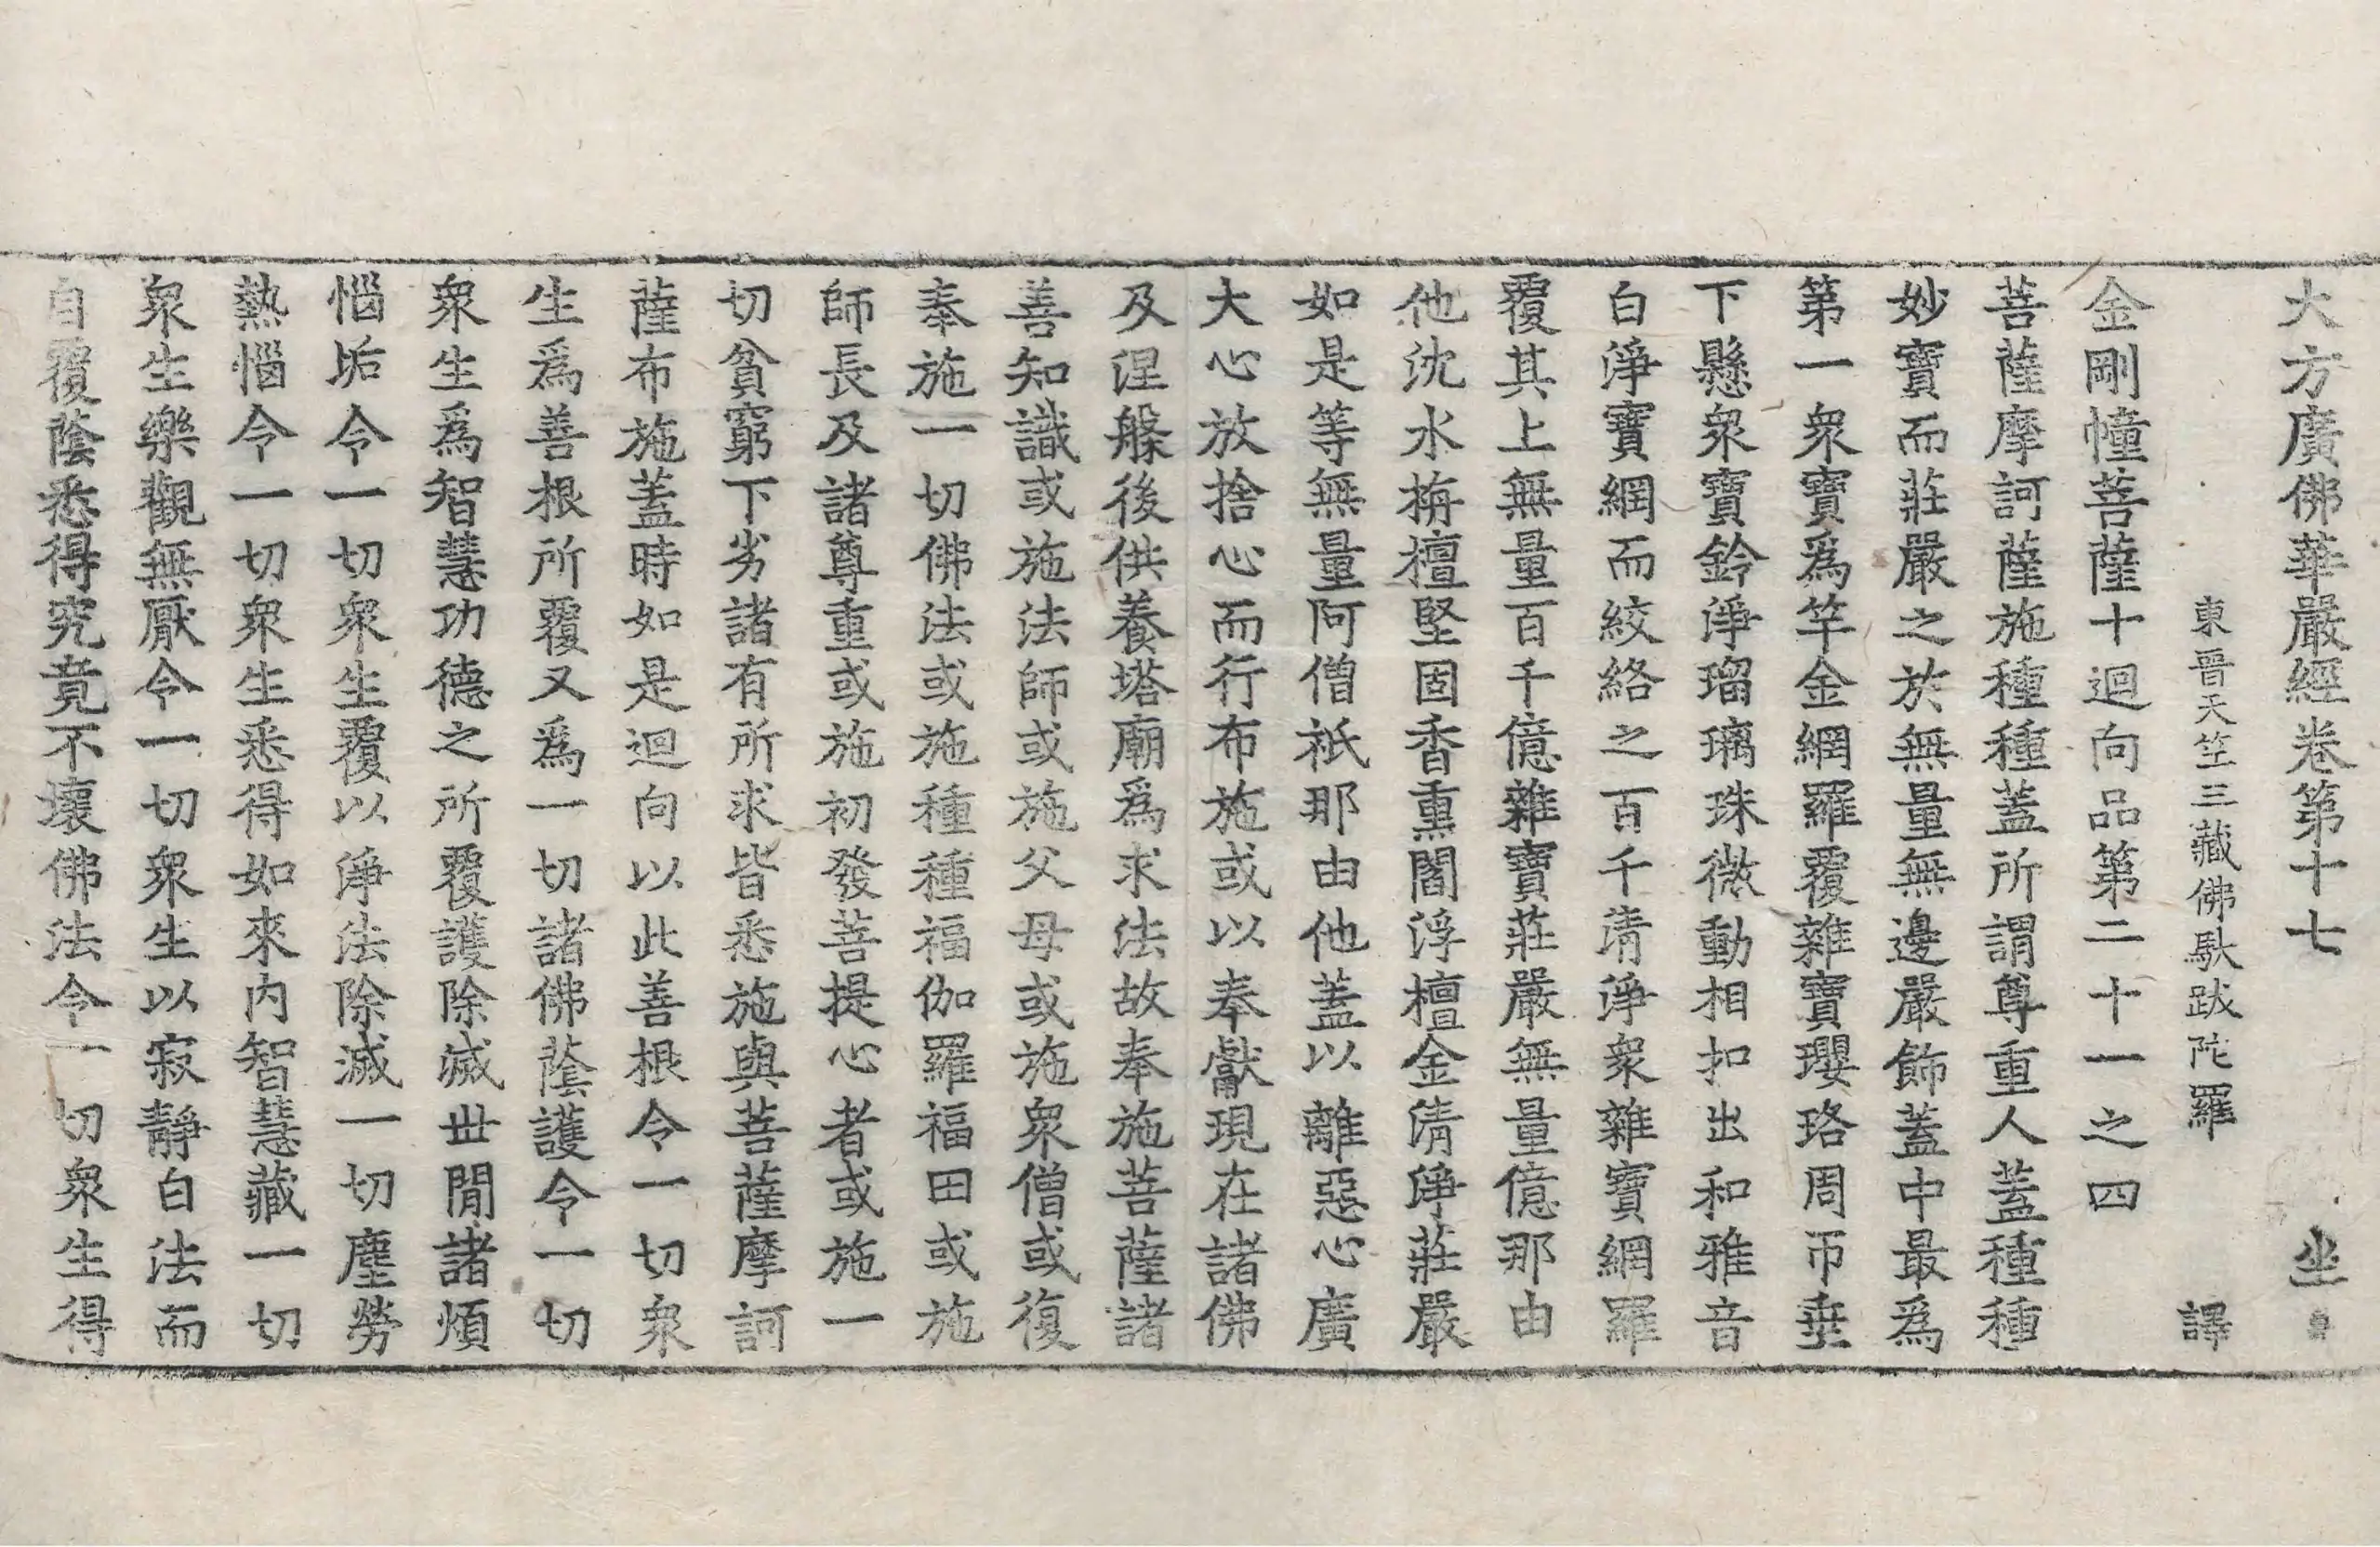 大方廣佛華嚴經卷第十七 坐
東晉天竺三藏佛馱跋陀羅 譯
金剛幢菩薩十迴向品第二十一之四
菩薩摩訶薩施種種蓋所謂尊重人蓋種種
妙寶而莊嚴之於無量無邊嚴飾蓋中最為
第一衆寶爲竿金網羅覆雜寶瓔珞周帀垂
下懸衆寶鈴淨瑠璃珠微動相扣出和雅音
白淨寶網而絞絡之百千清淨衆雜寶網羅
覆其上無量百千億雜寶莊嚴無量億那由
他沈水栴檀堅固香熏閻浮檀金清淨莊嚴
如是等無量阿僧祇那由他蓋以離惡心廣
大心放捨心而行布施或以奉獻現在諸佛
及涅槃後供養塔廟爲求法故奉施菩薩諸
善知識或施法師或施父母或施衆僧或復
奉施一切佛法或施種種福伽羅福田或施
師長及諸尊重或施初發菩提心者或施一
切貧窮下劣諸有所求皆悉施與菩薩摩訶
薩布施蓋時如是迴向以此善根令一切衆
生爲善根所覆又爲一切諸佛蔭護令一切
衆生爲智慧功德之所覆護除滅世閒諸煩
惱垢令一切衆生覆以淨法除滅一切塵勞
熱惱令一切衆生悉得如來内智慧藏一切
衆生樂觀無厭令一切衆生以寂靜白法而
自覆蔭悉得究竟不壞佛法令一切衆生得